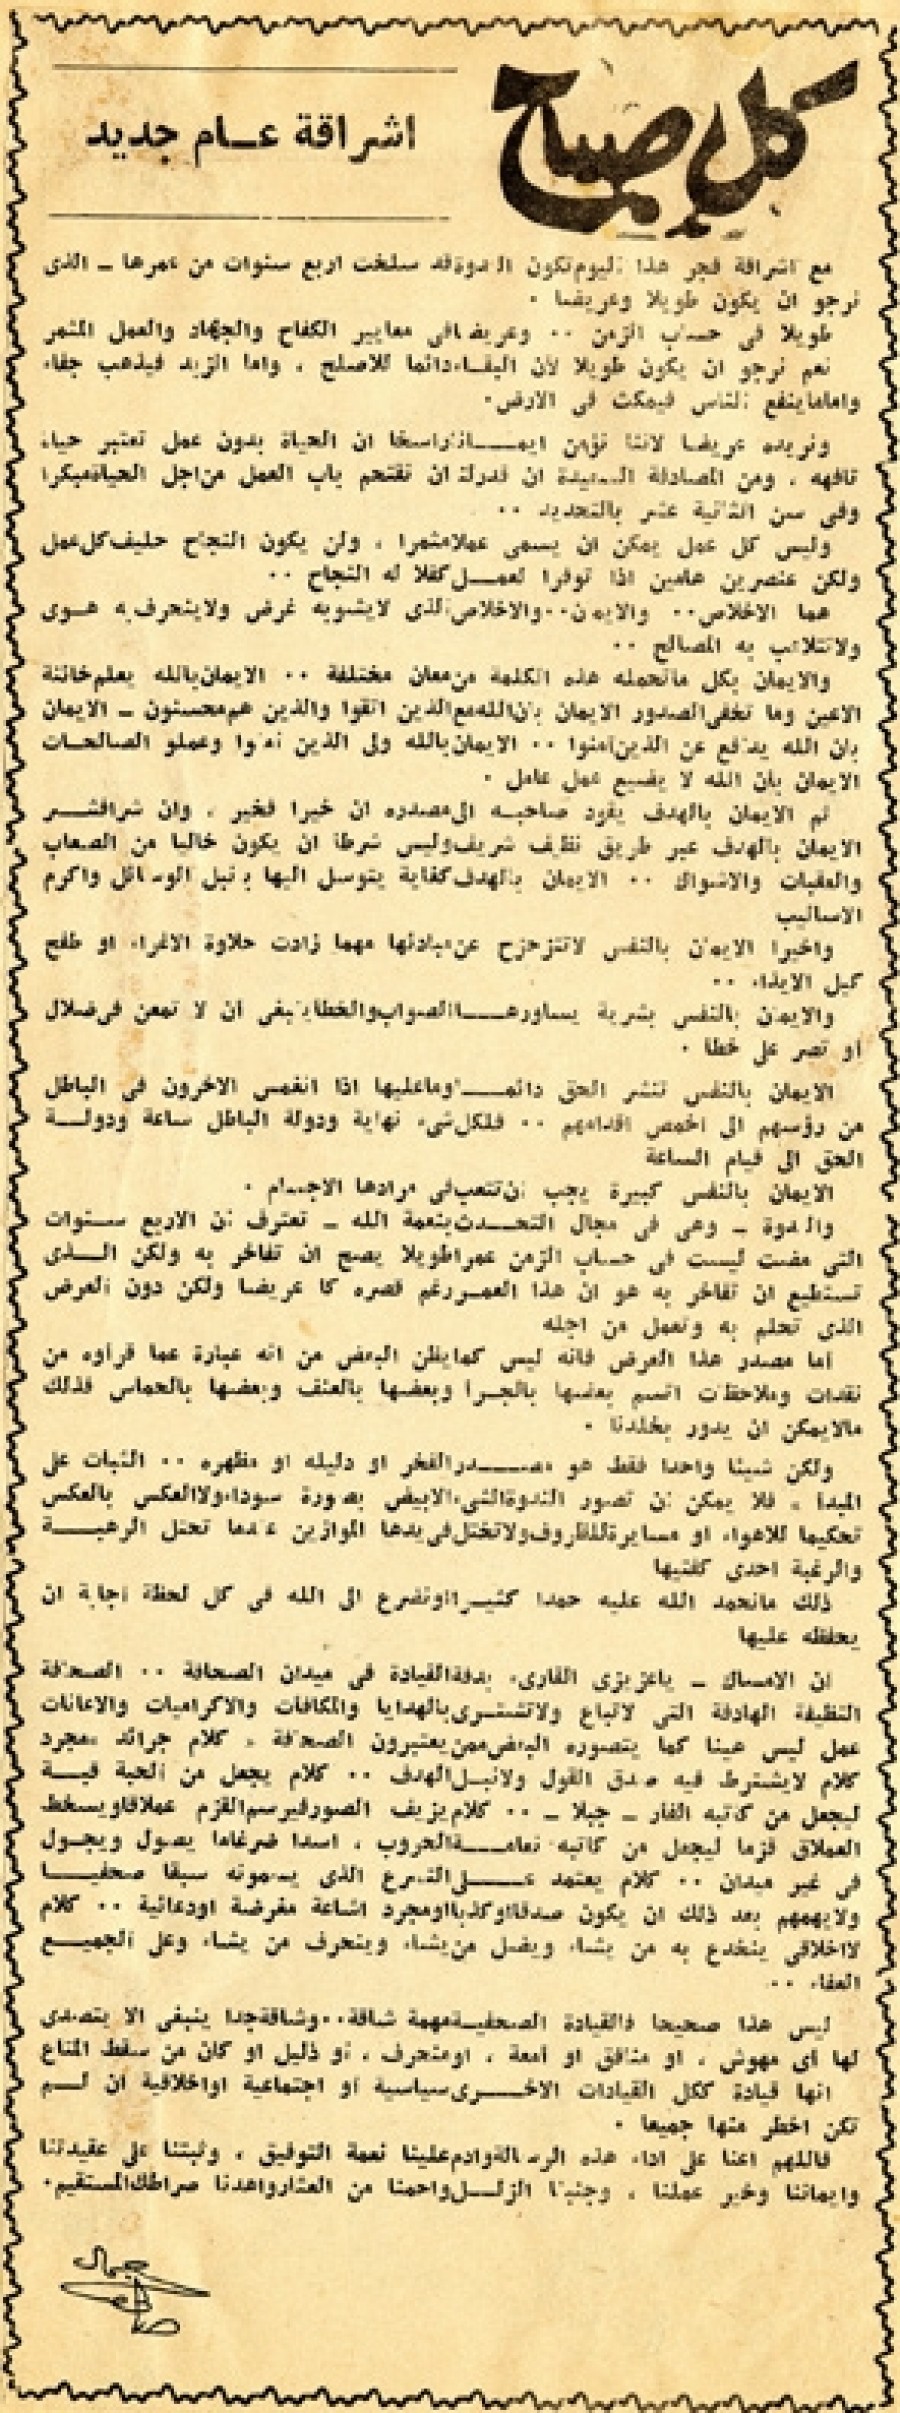 كل صباح
اشراقة عـــام جديد
مع اشراقة فجر هذا اليوم تكون الندوة قد سلخت اربع سنوات من عمرها ــ الذى
نرجو ان يكون طويلا وعريضا ٠
طويلا فى حساب الزمن ٠٠ وعريضا فى معايير الكفاح والجهاد والعمل المثمر
نعم نرجو ان يكون طويلا لان البقاء دائما للاصلح ، واما الزبد فيذهب جفاء
واما ما ينفع الناس فيمكث فى الارض ٠
ونريده عريضا لاننا نؤمن ايمـــانا راسخا ان الحياة بدون عمل تعتبر حياة
تافهه ، ومن المصادفة السعيدة ان قدر لنا ان نقتحم باب العمل من اجل الحياة مبكرا
وفى سن الثانية عشر بالتحديد ٠٠
وليس كل عمل يمكن ان يسمى عملا مثمرا ، ولن يكون النجاح حليف كل عمل
ولكن عنصرين هامين اذا توفرا لعمـــل كفلا له النجاح ٠٠
هما الاخلاص ٠٠ والايمان ٠٠ والاخلاص الذى لايشوبه غرض ولا ينحرف به هــوى
ولا تتلاعب به المصالح ٠٠
والايمان بكل ما تحمله هذه الكلمة من معان مختلفة ٠٠ الايمان بالله يعلم خائنة
الاعين وما تخفى الصدور الايمان بان الله مع الذين اتقوا والذين هم محسنون ــ الايمان
بان الله يدافع عن الذين آمنوا ٠٠ الايمان بالله ولى الذين آمنوا وعملو الصالحـات
الايمان بان الله لا يضيع عمل عامل ٠
ثم الايمان بالهدف يقود صاحبــه الى مصدره ان خيرا فخير ، وان شرا فشـــر
الايمان بالهدف عبر طريق نظيف شريف وليس شرطا ان يكون خاليا من الصعاب
والعقبات والاشواك ٠٠ الايمان بالهدف كغاية يتوسل اليها بنبل الوسائل واكرم
الاساليب
واخيرا الايمان بالنفس لا تتزحزح عن مبادئها مهما زادت حلاوة الاغراء او طفح
كيل الايذاء ٠٠
والايمان بالنفس بشرية يساورهــــا الصواب والخطأ ينبغى ان لا تمعن فى ضلال
او تصر على خطا ٠
الايمان بالنفس تنشر الحق دائمــــا وما عليها اذا انغمس الاخرون فى الباطل
من رؤسهم الى اخمص اقدامهم ٠٠ فلكل شىء نهاية ودولة الباطل ساعة ودولـــة
الحق الى قيام الساعة
الايمان بالنفس كبيرة يجب ان تتعب فى مرادها الاجسام ٠
والندوة ــ وهى فى مجال التحــدث بنعمة الله ــ تعترف ان الاربع ســنوات
التى مضت ليست فى حساب الزمن عمرا طويلا يصح ان تفاخر به ولكن الــــذى
تستطيع ان تفاخر به هو ان هذا العمــر رغم قصره كا عريضا ولكن دون العرض
الذى تحلم به وتعمل من اجله
اما مصدر هذا العرض فانه ليس كما يظن البعض من انه عبارة عما قراوه من
نقدات وملاحظات اتسم بعضها بالجــرا وبعضها بالعنف وبعضها بالحماس فذلك
مالايمكن ان يدور بخلدنا ٠
ولكن شيئا واحدا فقط هو مصـــــدر الفخر او دليله او مظهره ٠٠ الثبات على
المبدا ، فلا يمكن ان تصور الندوة الشىء الابيض بصورة سوداء ولا العكس بالعكس
تحكيما للاهواء او مسايرة للظروف ولا تختل فى يدها الموازين عندما تحتل الرهبـــة
والرغبة احدى كفتيها
ذلك ما نحمد الله عليه حمدا كثيــرا ونضرع الى الله فى كل لحظة اجابة ان
يحفظه عليها
ان الامساك ــ ياعزيزى القارىء بدفة القيادة فى ميدان الصحافة ٠٠ الصحافة
النظيفة الهادفة التى لاتباع ولا تشتــرى بالهدايا والمكافات والاكراميات والاعانات
عمل ليس هينا كما يتصوره البعض ممن يعتبرون الصحافة ، كلام جرائد ، مجرد
كلام لايشترط فيه صدق القول ولا نبــل الهدف ٠٠ كلام يجعل من الحبة قبـــة
ليجعل من كاتبه الفار ــ جبلا ــ ٠٠ كلام يزيف الصور فيرسم القزم عملاقا ويسخط
العملاق قزما ليجعل من كاتبه نعامـــة الحروب ، اسدا ضرغاما يصول ويجــول
فى غير ميدان ٠٠ كلام يعتمد عـــــلى التسرع الذى يسمونه سبقا صحفيـــا
ولايهمهم بعد ذلك ان يكون صدقا او كذبا او مجرد اشاعة مغرضة او دعائية ٠٠ كلام
لااخلاقى ينخدع به من يشاء ويضل من يشاء وينحرف من يشاء وعلى الجميـــع
العفاء ٠٠
ليس هذا صحيحا فالقيادة الصحفيــة مهمة شاقة ٠٠ وشاقة جدا ينبغى الا يتصدى
لها اى مهوش ، او منافق او امعة ، او منحرف ، او ذليل او كان من سقط المتاع
انها قيادة ككل القيادات الاخـــرى سياسية او اجتماعية او اخلاقية ان لـــم
تكن اخطر منها جميعا ٠
فاللهم اعنا على اداء هذه الرسالة وادم علينا نعمة التوفيق ، وثبتنا على عقيدتنا
وايماننا وخير عملنا ، وجنبنا الزلـــل واحمنا من العثار واهدنا صراطك المستقيم ٠